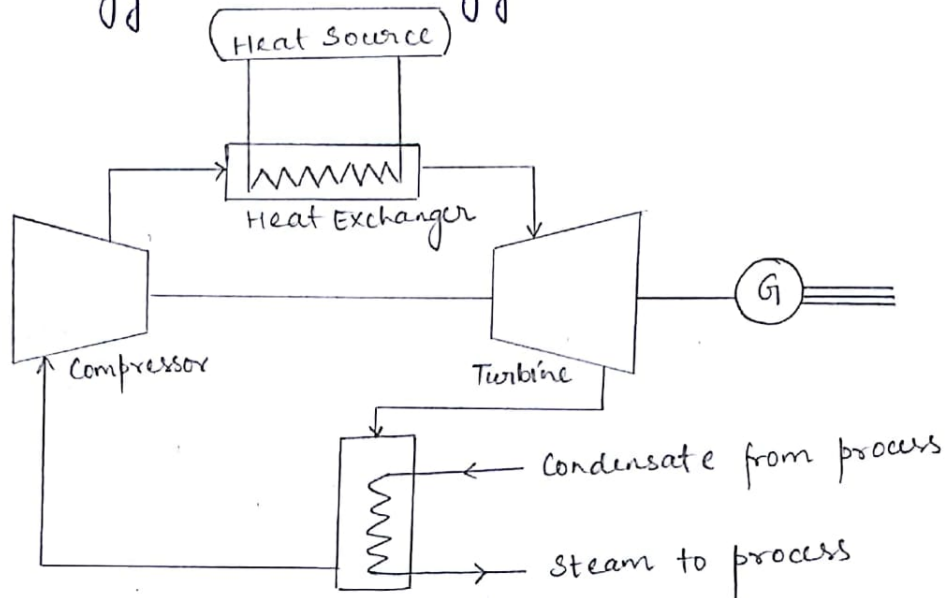 Heat Source
Heat Exchanger
G
Compressor
Turbine
Condensate from process
Steam to process